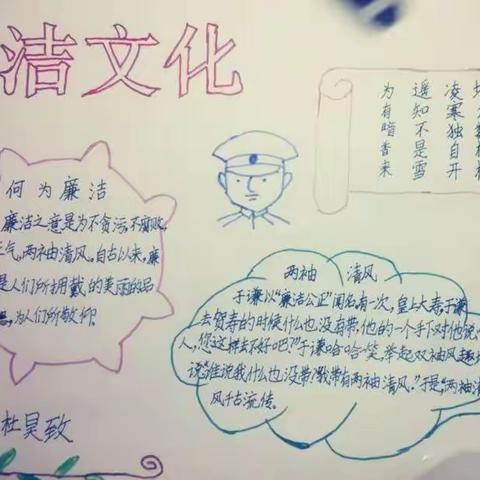 洁文化
墙
凌寒独自开
遥知不是雪
为有暗香来
何为廉洁
廉洁之意是为不贪污,不腐败,
正气,两袖清风。自古以来,廉
是人们所拥戴的美丽的品
为人们所敬仰。
两袖 清风
于谦以“廉洁公正”闻名有一次,皇上大寿于谦
去贺寿的时候什么也没有带,他的一个手下对他说
人,您这样去不好吧?”于谦哈哈一笑,举起双袖风趣地
说“谁说我什么也没带?我带有两袖清风。”于是,“两袖清
风千古流传。
杜昊致